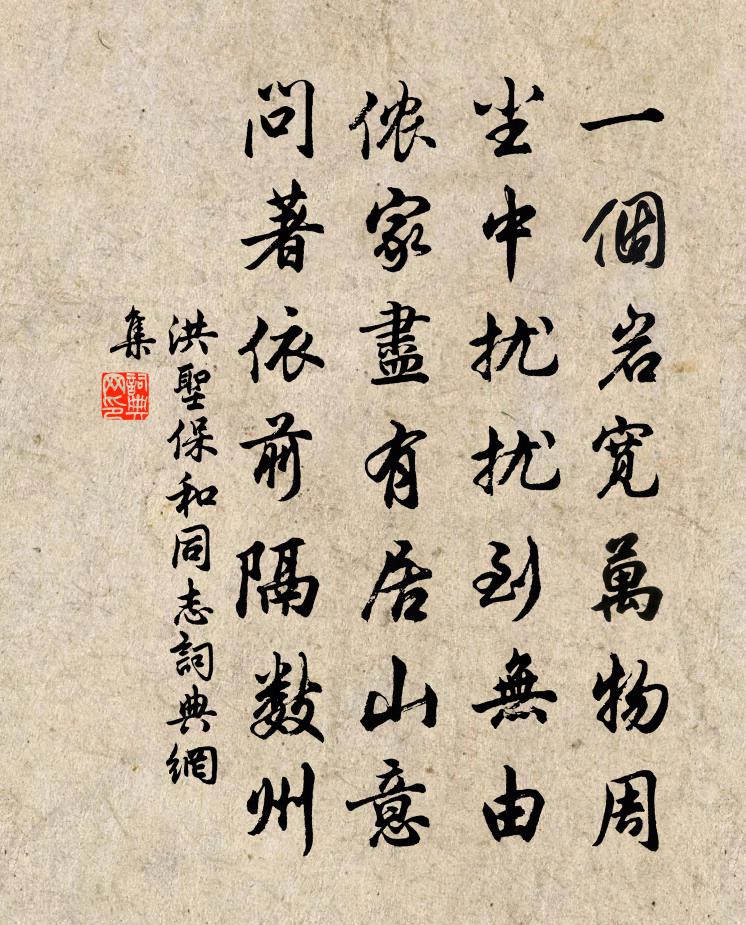 一個岩寬萬物周
尘中扰扰到無由
侬家盡有居山意
問著依前隔数州
洪聖保和同志詞典網
集
詞典
网印